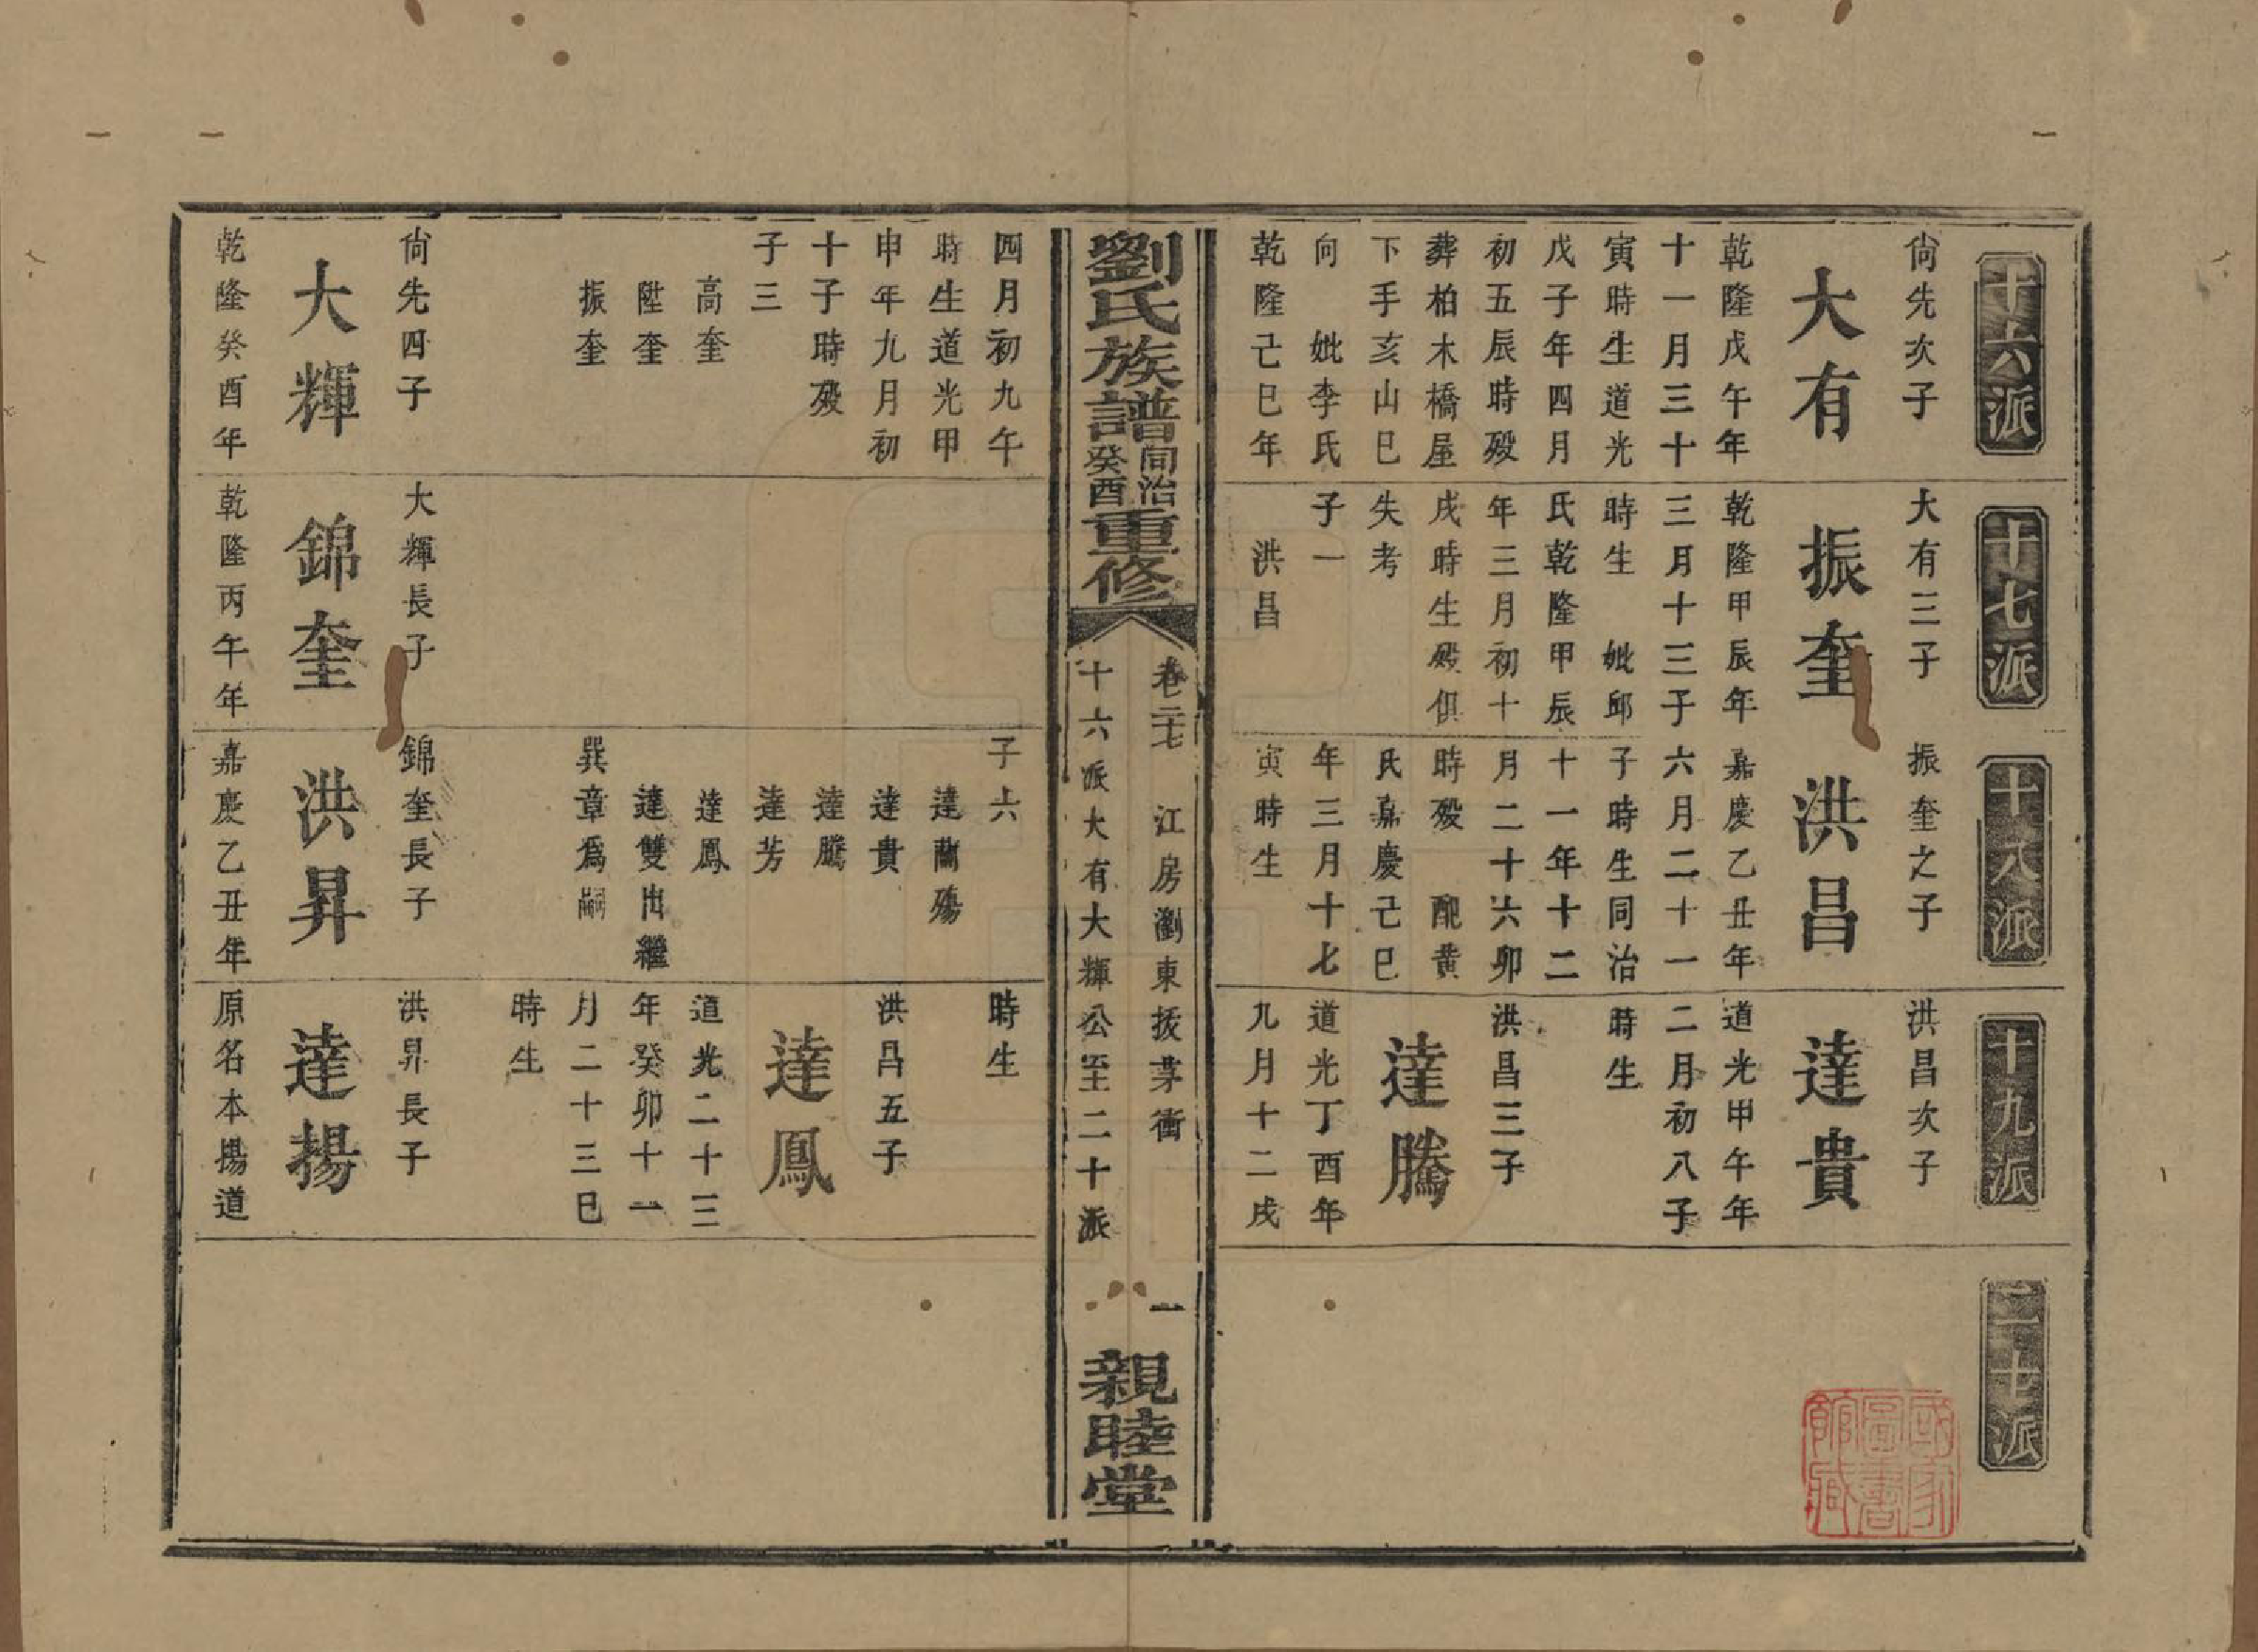 十六派
尙先次子
大有
乾隆戊午年
十一月三十
寅時生道光
戊子年四月
初五辰時殁
葬柏木橋屋
下手亥山巳
向　妣李氏
乾隆己巳年
十七派
大有三子
振奎
乾隆甲辰年
三月十三子
時生　妣邱
氏乾隆甲辰
年三月初十
戌時生殁俱
失考
子一
洪昌
十八派
振奎之子
洪昌
嘉慶乙丑年
六月二十一
子時生同治
十一年十二
月二十六卯
時殁　配黄
氏嘉慶己巳
年三月十七
寅時生
十九派
洪昌次子
達貴
道光甲午年
二月初八子
時生
洪昌三子
達騰
道光丁酉年
九月十二戌
二十派
劉氏族譜
同治
癸酉
重修
卷二七　江房瀏東
衝
十六派大有大輝公至二十派
一
親睦堂
四月初九午
時生道光甲
申年九月初
十子時殁
子三
高奎
陞奎
振奎
尙先四子
大輝
乾隆癸酉年
大輝長子
錦奎
乾隆丙午年
子六
達蘭殤
達貴
達騰
達芳
達鳳
達雙出繼
巽章爲嗣
錦奎長子
洪昇
嘉慶乙丑年
時生
洪昌五子
達鳳
道光二十三
年癸卯十一
月二十三巳
時生
洪昇長子
達揚
原名本揚道
國家
圖書
館藏